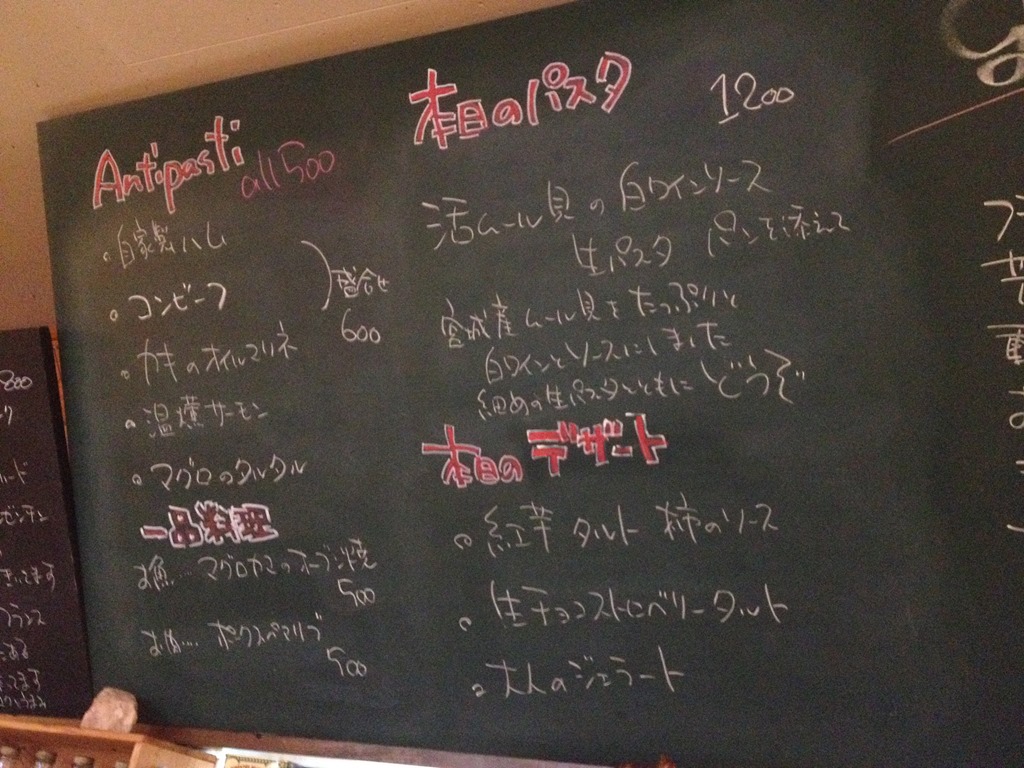 Antipasti
all 500
・自家製ハム
・コンビーフ
盛合せ
600
・カキのオイルマリネ
・温燻サーモン
・マグロのタルタル
一品料理
お魚… マグロカマのオーブン焼
500
お肉… ポークスペアリブ
500
本日のパスタ 1200
活ムール貝の白ワインソース
生パスタ パンを添えて
宮城産ムール貝をたっぷりと
白ワインとソースにしました
細めの生パスタとともにどうぞ
本日のデザート
・紅芋タルト 柿のソース
・生チョコストロベリータルト
・大人のジェラート
800